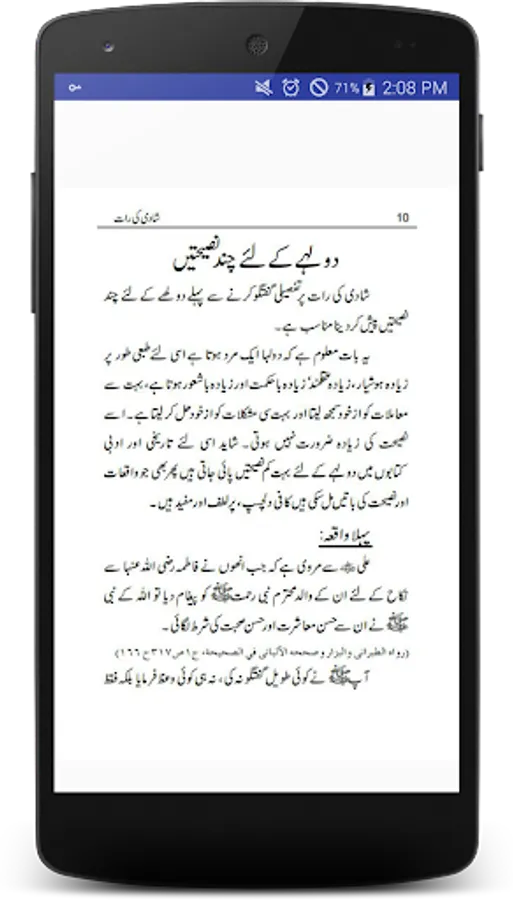 71% 2:08 PM
شادی کی رات 10
دولہے کے لئے چند نصیحتیں
شادی کی رات پر تفصیلی گفتگو کرنے سے پہلے دولھے کے لئے چند
نصیحتیں پیش کر دینا مناسب ہے۔
یہ بات معلوم ہے کہ دولہا ایک مرد ہوتا ہے اسی لئے طبعی طور پر
زیادہ ہوشیار، زیادہ عقلمند' زیادہ باحکمت اور زیادہ باشعور ہوتا ہے، بہت سے
معاملات کو از خود سمجھ لیتا اور بہت سی مشکلات کو از خود حل کر لیتا ہے۔ اسے
نصیحت کی زیادہ ضرورت نہیں ہوتی۔ شاید اسی لئے تاریخی اور ادبی
کتابوں میں دولہے کے لئے بہت کم نصیحتیں پائی جاتی ہیں پھر بھی جو واقعات
اور نصیحت کی باتیں مل سکی ہیں کافی دلچسپ، پر لطف اور مفید ہیں۔
پہلا واقعہ:
علی ؓ سے مروی ہے کہ جب انھوں نے فاطمہ رضی اللہ عنہا سے
نکاح کے لئے ان کے والد محترم نبی رحمت ﷺ کو پیغام دیا تو اللہ کے نبی
ﷺ نے ان سے حسن معاشرت اور حسن صحبت کی شرط لگائی۔
(رواہ الطبرانی والبزار وصححہ الألبانی فی الصحیحة، ج۱ ص۳۱۷ ح۱۶۶)
آپ ﷺ نے کوئی طویل گفتگو نہ کی، نہ ہی کوئی وعظ فرمایا بلکہ فقط